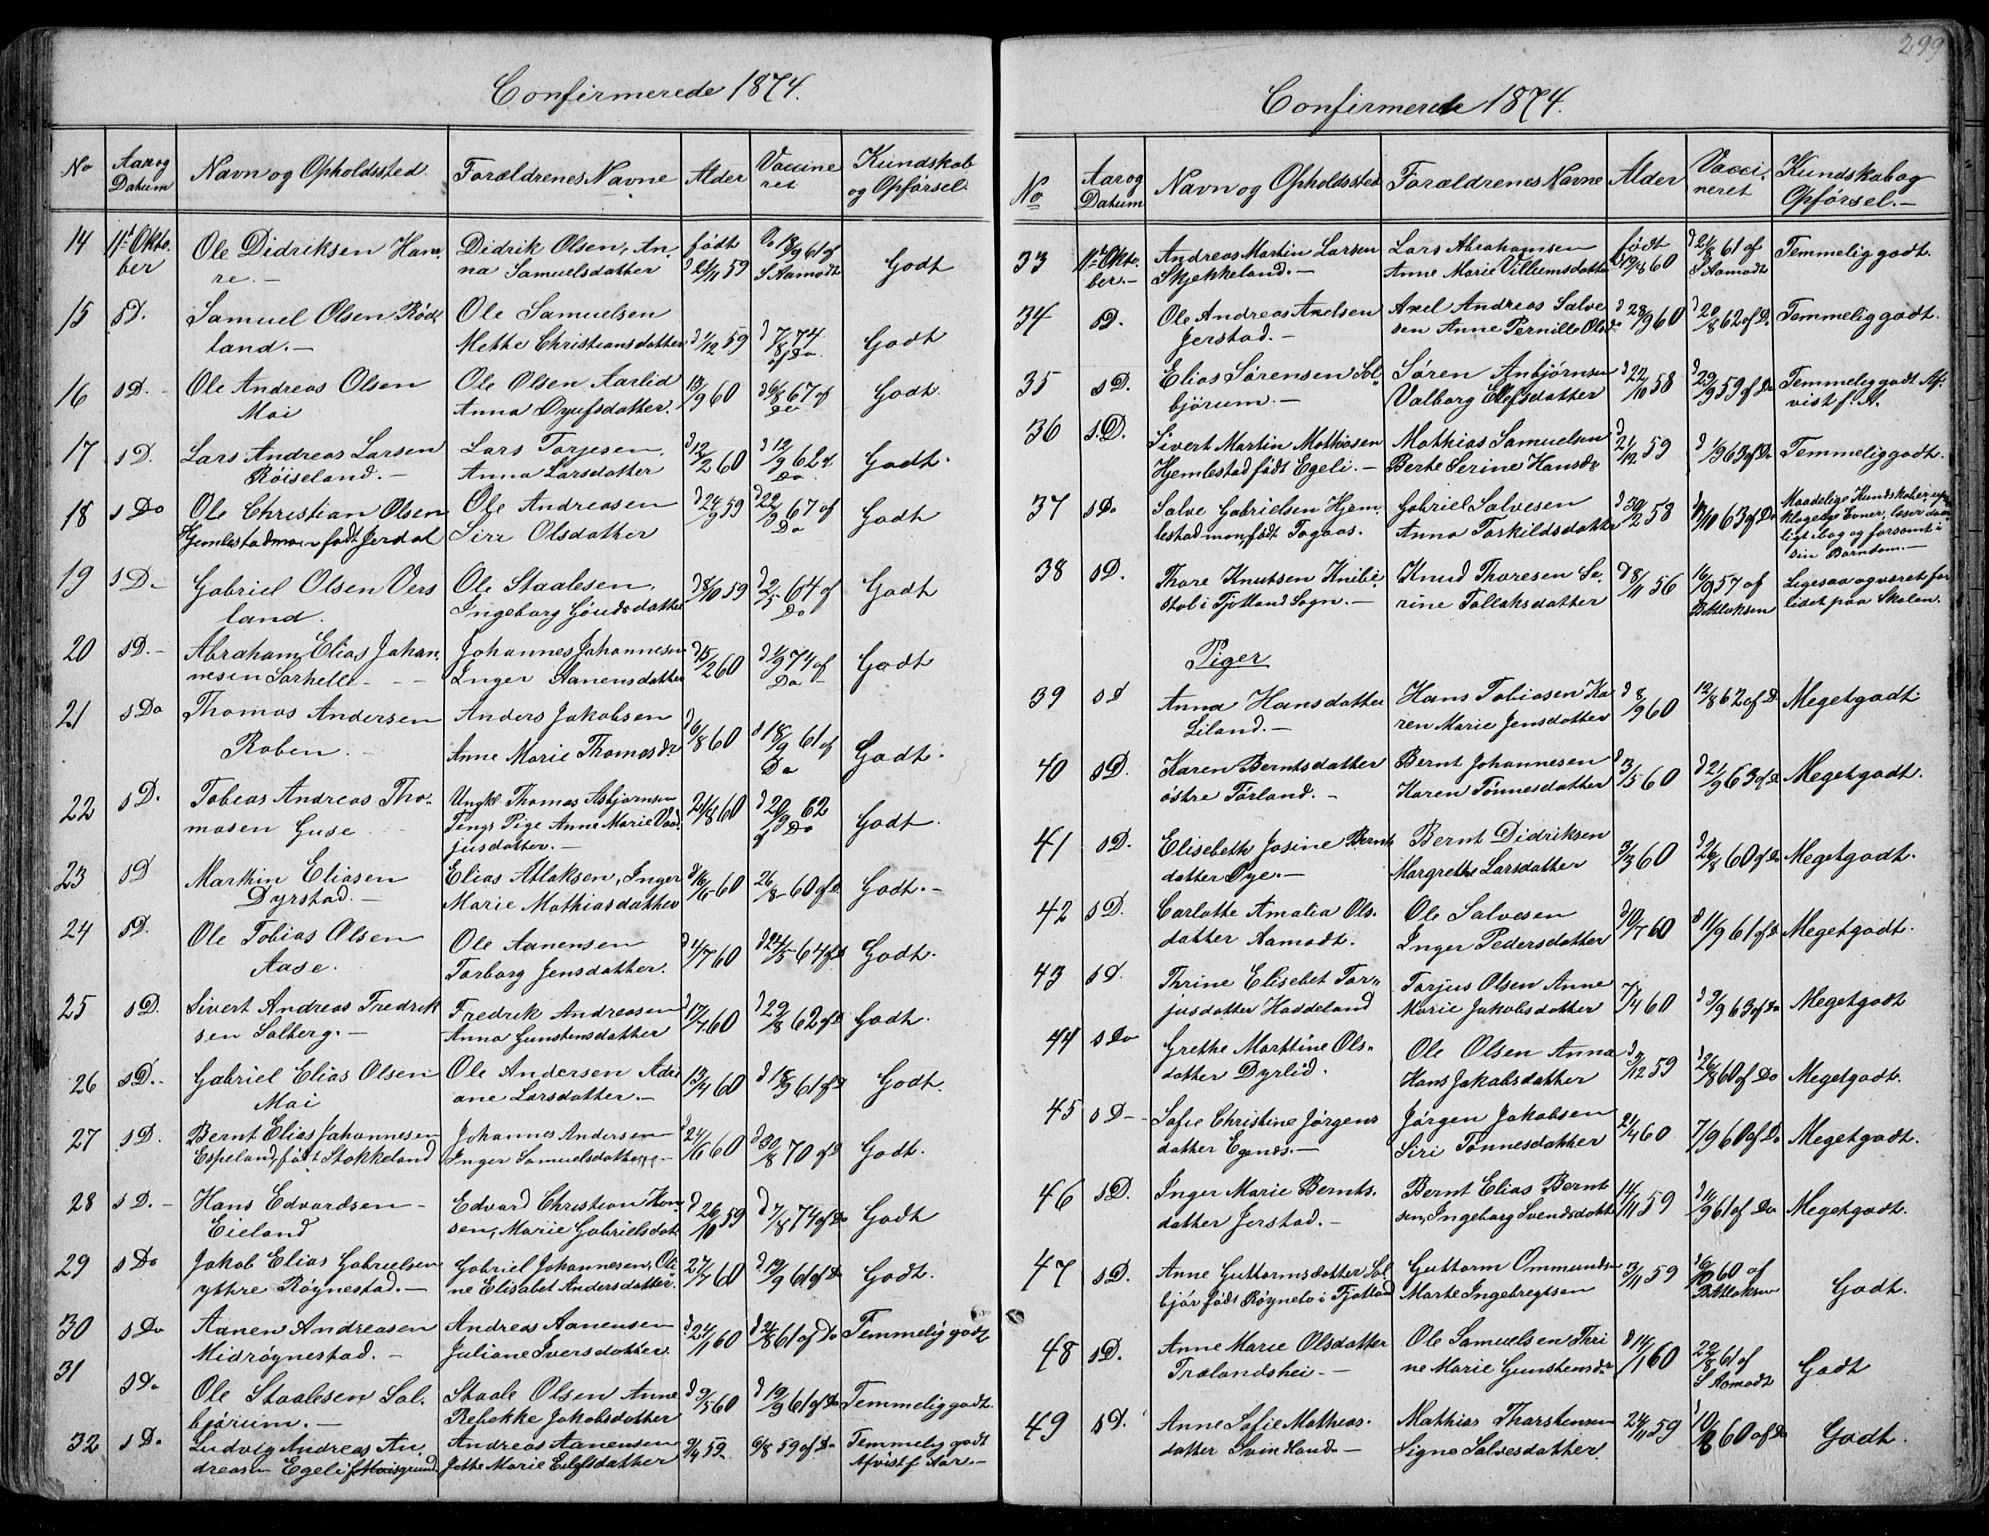 299
Confirmerede 1874.
No
Aar og
Datum
Navn og Opholdssted
Forældrenes Navne
Alder
Vaccine
ret
Kundskab
og Opførsel
14 11te Okto
ber
Ole Didriksen Han
re.—
Didrik Olsen, An
na Samuelsdatter
født
21/11 59
18/9 61 af
S. Aamodt
Godt
15 s D.
Samuel Olsen Röd
land.—
Ole Samuelsen
Mette Christiansdatter
1/12 59
7/8 74
af Do
Godt
16 s D.
Ole Andreas Olsen
Moi
Ole Olsen Aarlid
Anna Dyufsdatter.
13/9 60
6/8 67 af
Do
Godt.
17 s D.
Lars Andreas Larsen
Röiseland.—
Lars Torjesen,
Anna Larsdatter
12/2 60
12/9 62
Do
Godt.
18 s Do
Ole Christian Olsen
Hjemlestadmoen født Jerdal
Ole Andreasen
Siri Olsdatter
24/9 59
22/9 67 af
Do
Godt
19 s D.
Gabriel Olsen Vers
land.
Ole Staalesen,
Ingeborg Gjeudsdatter
8/10 59
2/5 64 af
Do
Godt
20 s D.—
Abraham Elias Johan
nesen Sarhelle
Johannes Johannesen
Inger Aanensdatter
15/2 60
1/9 74 af
Do
Godt
21 s Do
Thomas Andersen
Roben.
Anders Jakobsen
Anne Marie Thomasdr
6/8 60
18/9 61 af
Do
Godt.
22 s D.
Tobias Andreas Tho-
masen Guse
Ungk. Thomas Asbjørnsen
Feng. Pige Anne Marie
jusdatter.—
21/8 60
20/9 62
af Do
Godt.
23 s D
Martin Eliasen
Dyrstad.—
Elias Atlaksen, Inger
Marie Mathiasdatter
16/5 60
26/8 60 af D.
Godt.—
24 s D.
Ole Tobias Olsen
Aase.
Ole Aanensen
Torborg Jensdatter.
1/7 60
24/5 64 af D
Godt.
25 s D.
Sivert Andreas Fredrik
sen Solberg.—
Fredrik Andreasen
Anna Gunstensdatter
17/7 60
29/8 62 af D
Godt.
26 s D.
Gabriel Elias Olsen
Moi
Ole Andersen Adri
ane Larsdatter.—
13/4 60
18/9 61 af D
Godt.
27 s D.
Bernt Elias Johannesen
Espeland, født Stokkeland
Johannes Andersen
Inger Samuelsdatter
24/6 60
30/8 70 af D
Godt.
28 s D.—
Hans Edvardsen
Eieland
Edvard Christian Han
sen, Marie Gabrielsdat
26/10 59
7/8 74 af Do
Godt
29 s Do
Jakob Elias Gabrielsen
ythre Røynestad.—
Gabriel Johannesen, Oli
ne Elisabet Andersdatter.
27/7 60
19/9 61 af Do
Godt.
30 s Do
Aanen Andreasen
Midrøynestad.—
Andreas Aanensen
Juliane Iversdatter
24/1 60
21/8 61 af Do
Temmelig godt
31 s Do
Ole Staalesen Sol-
bjørum.—
Staale Olsen Anne
Rebekke Jakobsdatter
9/5 60
19/9 61 af Do
Temmelig godt
32 s Do
Ludvig Andreas An-
dreasen Egeli f. Moisgrund
Andreas Aanensen
Jotte Marie Eilefsdatter
9/4 59
6/8 59 af Do
Temmelig godt
Afvist f. Aar.—
Confirmerede 1874.
No
Aar og
Datum
Navn og Opholdssted
Forældrenes Navne
Alder
Vacci-
neret
Kundskab og
Opførsel.—
33 11te Okto-
ber.—
Andreas Martin Larsen
Skjekkeland.—
Lars Abrahamsen
Anne Marie Villumsdatter
født
19/8 60
21/8 61 af
S Aamodt
Temmelig godt.
34 s D.
Ole Andreas Axelsen
Jerstad.—
Axel Andreas Salve
sen Anne Pernille Olsd.
28/9 60
20/8 62 af D.
Temmelig godt.
35 s D.
Elias Sørensen Sol-
bjørum.—
Søren Anbjørnsen
Valborg Ellefsdatter
22/10 58
29/9 59 af Do
Temmelig godt Af-
vist f. A.
36 s. D.
Sivert Martin Mathiasen
Hjemlestad født Egeli.—
Mathias Samuelsen
Berte Serine Hansdr
21/12 59
1/9 63 af Do
Temmelig godt.
37 s Do
Salve Gabrielsen Hjem-
lestadmoen, født Tagaas.
Gabriel Salvesen
Anna Taskildsdatter
30/2 58
13/10 63 af Do
Maadelige Kundskaber,
klagelige Evner, læser daar-
ligt bog og forsømt i
sin Barndom.—
38 s D.
Thore Knutsen Knibe-
stol i Fjotland Sogn.—
Knud Thoresen Se-
rine Tollaksdatter
8/11 56
16/9 57 af
B. Atlaksen
Ligesaa og været for
lidet paa Skolen.
Piger
39 s D
Anna Hansdatter
Liland.—
Hans Tobiasen Ka
ren Marie Jensdatter
8/9 60
12/8 62 af D
Meget godt
40 s D.
Karen Berntsdatter
østre Førland.—
Bernt Johannesen
Karen Tønnesdatter
3/5 60
21/9 63 af Do
Meget godt.
41 s D.
Elisebeth Josine Bernts
datter Øye.—
Bernt Didriksen
Margrethe Larsdatter
3/3 60
26/8 60 af Do
Meget godt.
42 s D.
Carlotte Amalia Ols-
datter Aamodt.
Ole Salvesen
Inger Pedersdatter
10/7 60
11/9 61 af D
Meget godt.
43 s D.
Thrine Elisebet Tor-
jusdatter Haddeland
Torjus Olsen Anne
Marie Jakobsdatter
7/4 60
9/9 63 af Do
Meget godt
44 s Do
Grethe Marttine Ols-
datter Dyrlid.
Ole Olsen Anna
Hans Jakobsdatter
3/12 59
26/8 60 af Do
Meget godt.
45 s D—
Sofie Christine Jørgens
datter Egends.—
Jørgen Jakobsen
Siri Tønnesdatter
21/4 60
7/9 60 af Do
Meget godt.
46 s D.
Inger Marie Bernts.
datter Jerstad.—
Bernt Elias Bernt
sen, Ingeborg Svendsdatt
14/11 59
11/9 61 af Do
Meget godt.
47 s D.
Anne Guttormsdatter Sol
bjør født Røynelo i Fjotland
Guttorm Ommunds
Marte Ingebregtsen
13/11 59
16/10 60 af
B. Atlaksen
Godt.
48 s D.
Anne Marie Olsdatter
Trælandshei.—
Ole Samuelsen Thri
ne Marie Gunstensdr
14/1 60
22/8 61 af
S Aamodt
Godt
49 s D.
Anne Sofie Mathias-
datter Svindland.—
Mathias Thorstensen
Signe Salvesdatter.
24/11 59
10/8 60 af Do
Godt.